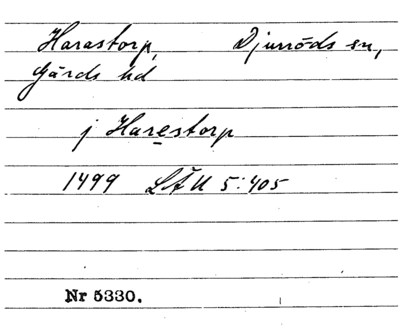 Harastorp, Djurröds sn,
Gärds hd
j Harestorp
1499 LÄU 5:405
Nr 5330.